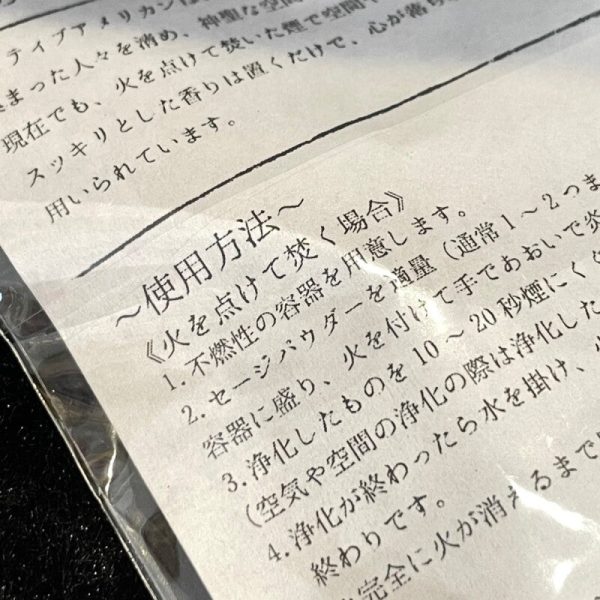 ティブアメリカン
まった人々を清め、神聖な空間
現在でも、火を点けて焚いた煙で空間や
スッキリとした香りは置くだけで、心が落ち
用いられています。
～使用方法～
《火を点けて焚く場合》
1. 不燃性の容器を用意します。
2. セージパウダーを適量（通常1～2つま
容器に盛り、火を付けて手であおいで炎
3. 浄化したものを10～20秒煙にくぐ
（空気や空間の浄化の際は浄化した
4. 浄化が終わったら水を掛け、
終わりです。
完全に火が消えるまで